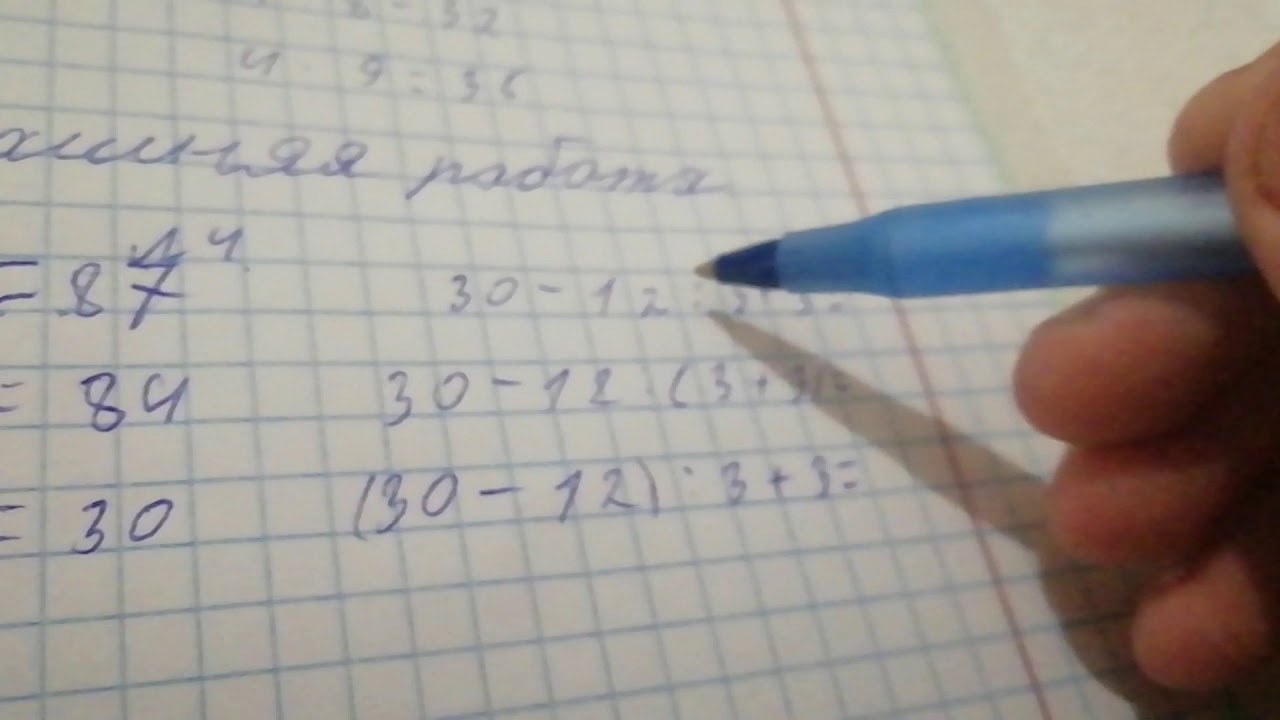 8 = 32
4 · 9 = 36
ашняя работа
= 87 14 30 - 12 : 3 + 3 =
= 84 30 - 12 : (3 + 3) =
= 30 (30 - 12) : 3 + 3 =